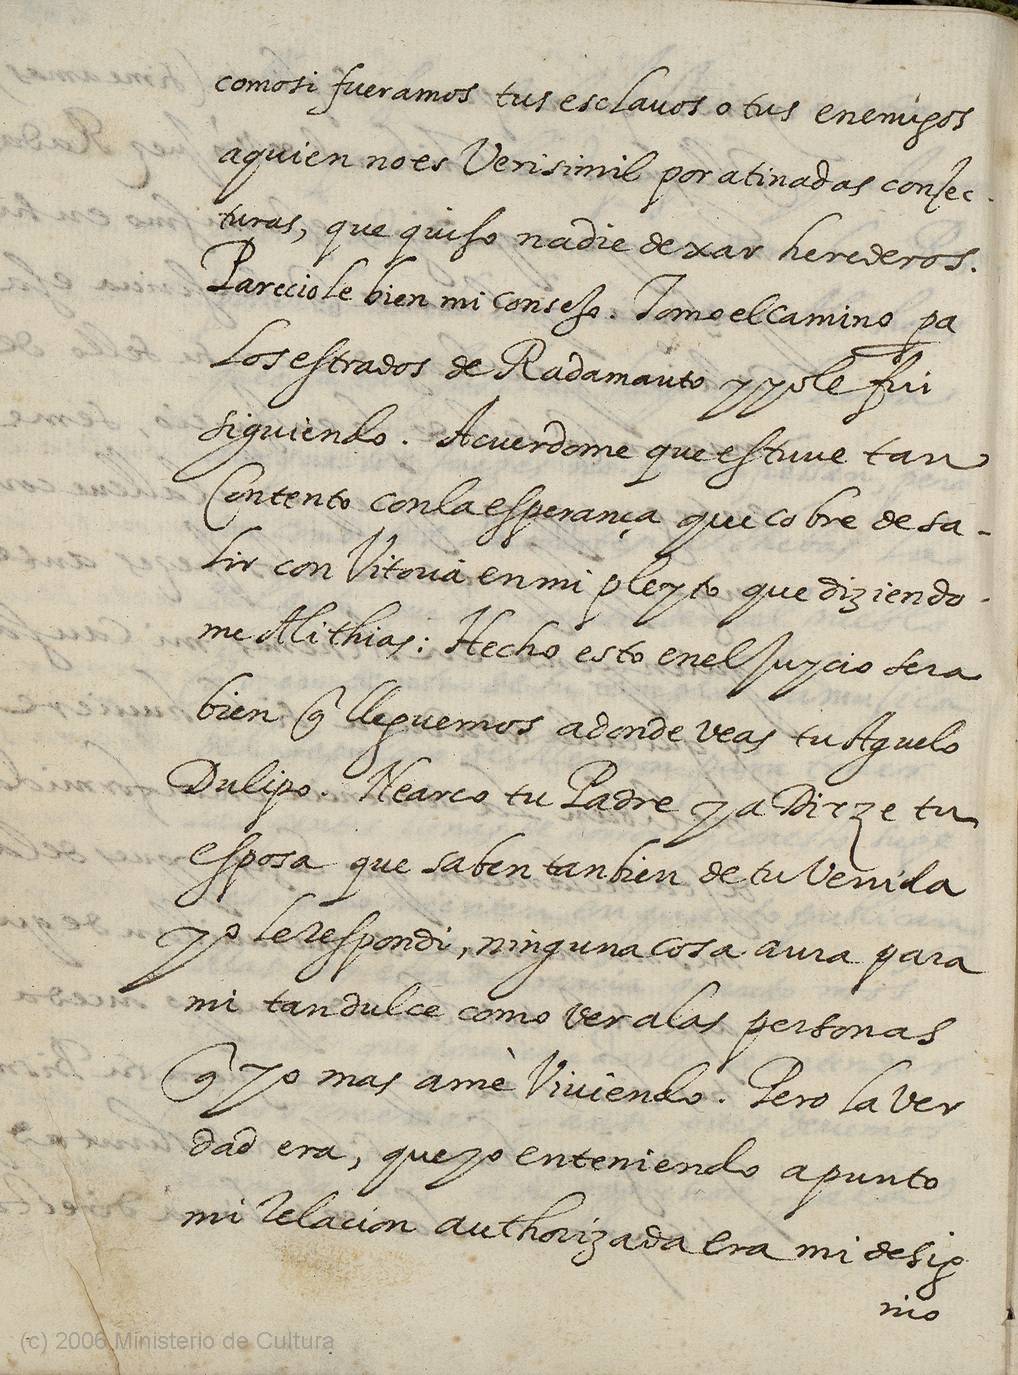 comosi fueramos tus esclavos o tus enemigos
aquien noes Verisimil por atinadas conjec-
turas, que quiso nadie dexar herederos.
Pareciole bien mi consejo. Tomo el camino pa
los estrados de Radamanto y yo le fui
siguiendo. Acuerdome que estuve tan
Contento con la esperança que cobre de sa-
lir con Vitoria en mi pleyto que diziendo-
me Alithias: Hecho esto en el Juycio sera
bien q̃ lleguemos adonde veas tu Aguelo
Dulipo. Nearco tu Padre y a Dirze tu
esposa que saben tanbien de tu Venida
yo le respondi, ninguna cosa aura para
mi tan dulce como ver alas personas
q̃ yo mas amè Viviendo. Pero la ver
dad era, que yo en teniendo a punto
mi relacion authorizada era mi desig
nio
(c) 2006 Ministerio de Cultura